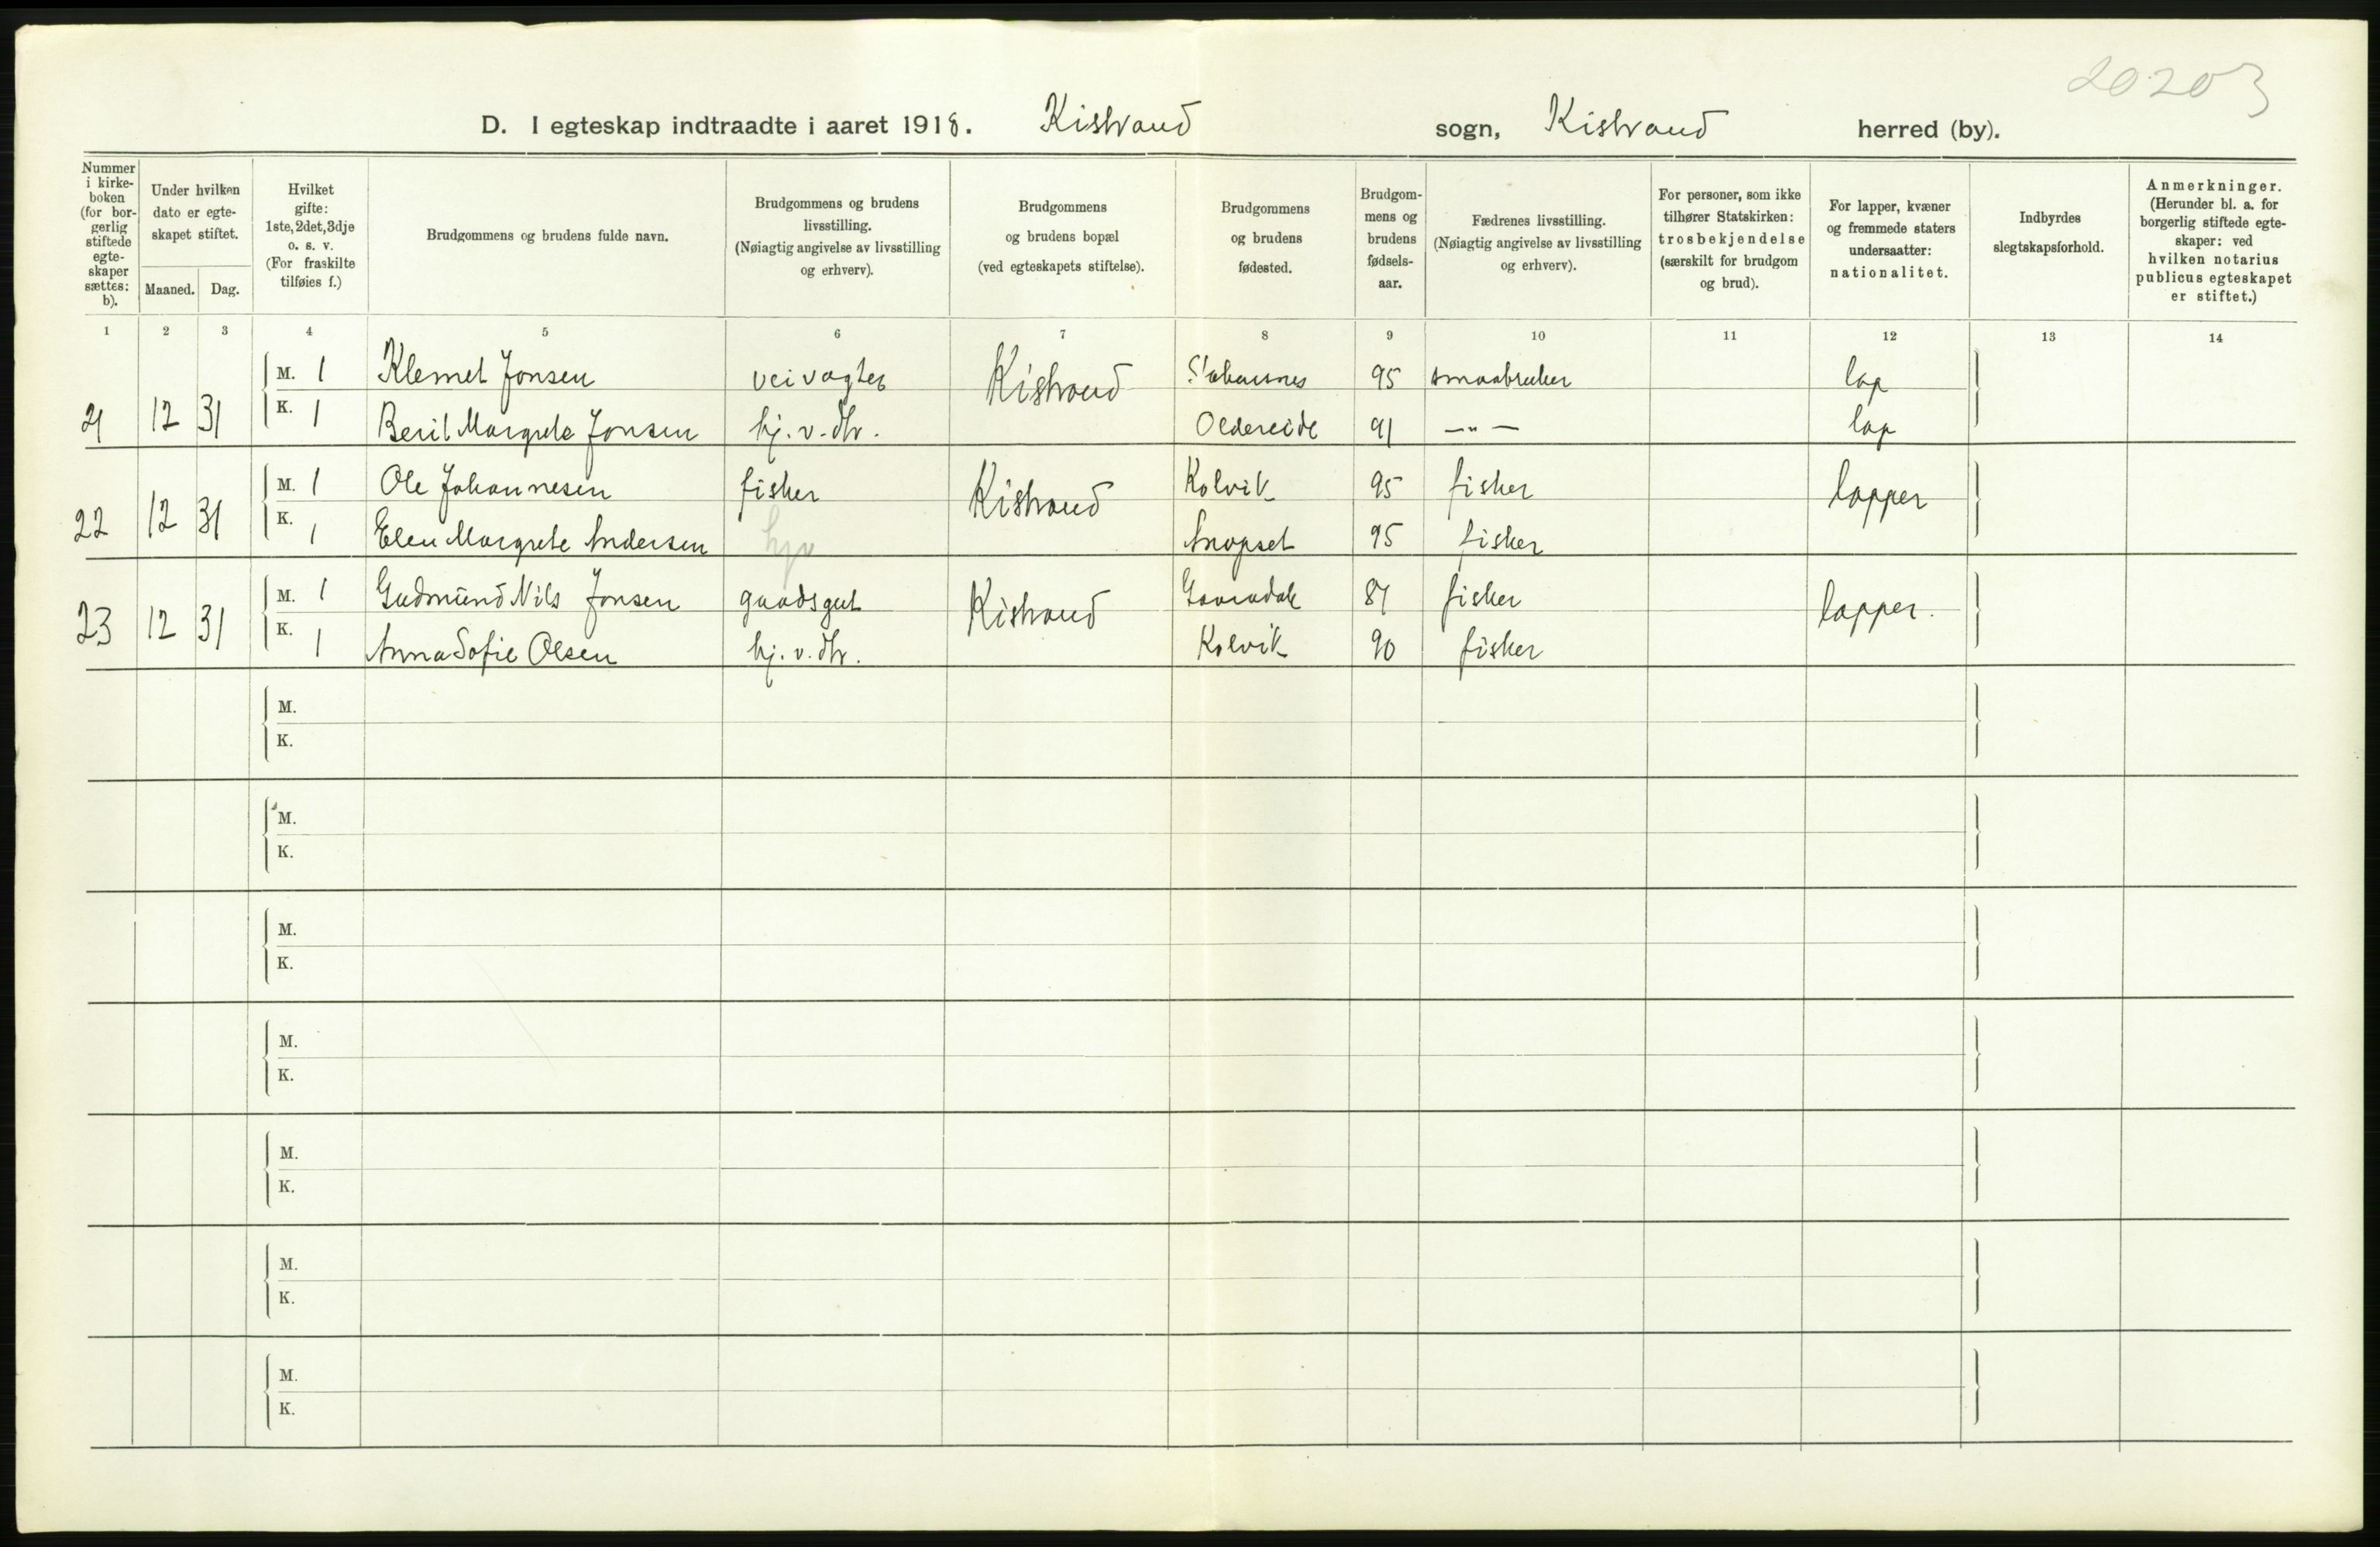 20203
D. I egteskap indtraadte i aaret 1918. Kistrand sogn, Kistrand herred (by).
Nummer i kirke-boken (for bor-gerlig stiftede egte-skaper sættes: b).
Under hvilken dato er egte-skapet stiftet.
Maaned. Dag.
Hvilket gifte: 1ste, 2det, 3dje o. s. v. (For fraskilte tilføies f.)
Brudgommens og brudens fulde navn.
Brudgommens og brudens livsstilling. (Nøiagtig angivelse av livsstilling og erhverv).
Brudgommens og brudens bopæl (ved egteskapets stiftelse).
Brudgommens og brudens fødested.
Brudgom-mens og brudens fødsels-aar.
Fædrenes livsstilling. (Nøiagtig angivelse av livsstilling og erhverv).
For personer, som ikke tilhører Statskirken: trosbekjendelse (særskilt for brudgom og brud).
For lapper, kvæner og fremmede staters undersaatter: nationalitet.
Indbyrdes slegtskapsforhold.
Anmerkninger. (Herunder bl. a. for borgerlig stiftede egte-skaper: ved hvilken notarius publicus egteskapet er stiftet.)
1 2 3 4 5 6 7 8 9 10 11 12 13 14
M. 1 Klemet Jonsen veivogter Kistrand 95 smaabruker lap
21 12 31 K. 1 Berit Margrete Jonsen hj. v. dtr. Oldereide 91 —"— lap
M. 1 Ole Johannesen fisker Kistrand Kolvik 95 fisker lapper
22 12 31 K. 1 Elen Margrete Andersen hjv Anopset 95 fisker
M. 1 Gudmund Nils Jonsen gaardsgut Kistrand 87 fisker lapper.
23 12 31 K. 1 Anna Sofie Olsen hj. v. dtr. Kolvik 90 fisker
M.
K.
M.
K.
M.
K.
M.
K.
M.
K.
M.
K.
M.
K.